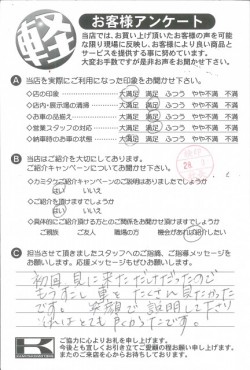 軽
お客様アンケート
当店では、お買い上げ頂いたお客様の声を可能
な限り現場に反映し、お客様により良い商品と
サービスを提供する事に努めています。
大変お手数ですが是非お声をお聞かせ下さい。
A 当店を実際にご利用になった印象をお聞かせ下さい。
◇店の印象 大満足 満足 ふつう やや不満 不満
◇店内・展示場の清掃 大満足 満足 ふつう やや不満 不満
◇お車の品揃え 大満足 満足 ふつう やや不満 不満
◇営業スタッフの対応 大満足 満足 ふつう やや不満 不満
◇納車時のお車の状態 大満足 満足 ふつう やや不満 不満
B 当店はご紹介を大切にしております。
ご紹介キャンペーンについてお聞かせ下さい。
◇カミタケご紹介キャンペーンのご説明はありましたでしょうか
はい いいえ
◇ご紹介を頂けますでしょうか
はい いいえ
◇具体的にご紹介頂ける方との関係をお聞かせ頂けますでしょうか
ご親族 ご友人 職場の方 機会があれば紹介したい
C 担当させて頂きましたスタッフへのご指摘、ご指導メッセージを
お願いします。応援メッセージもぜひお願いします。
初回 見に来ただけだったので
もう少し 車を たくさん 見たかった
です。 笑顔で 説明して下さり
それはとても 良かったです。
K
ご協力に心よりお礼を申し上げます。
今後とも宜しくお引き立てご愛顧の程お願い申し上げます。
またのご来店を心からお待ちしております。